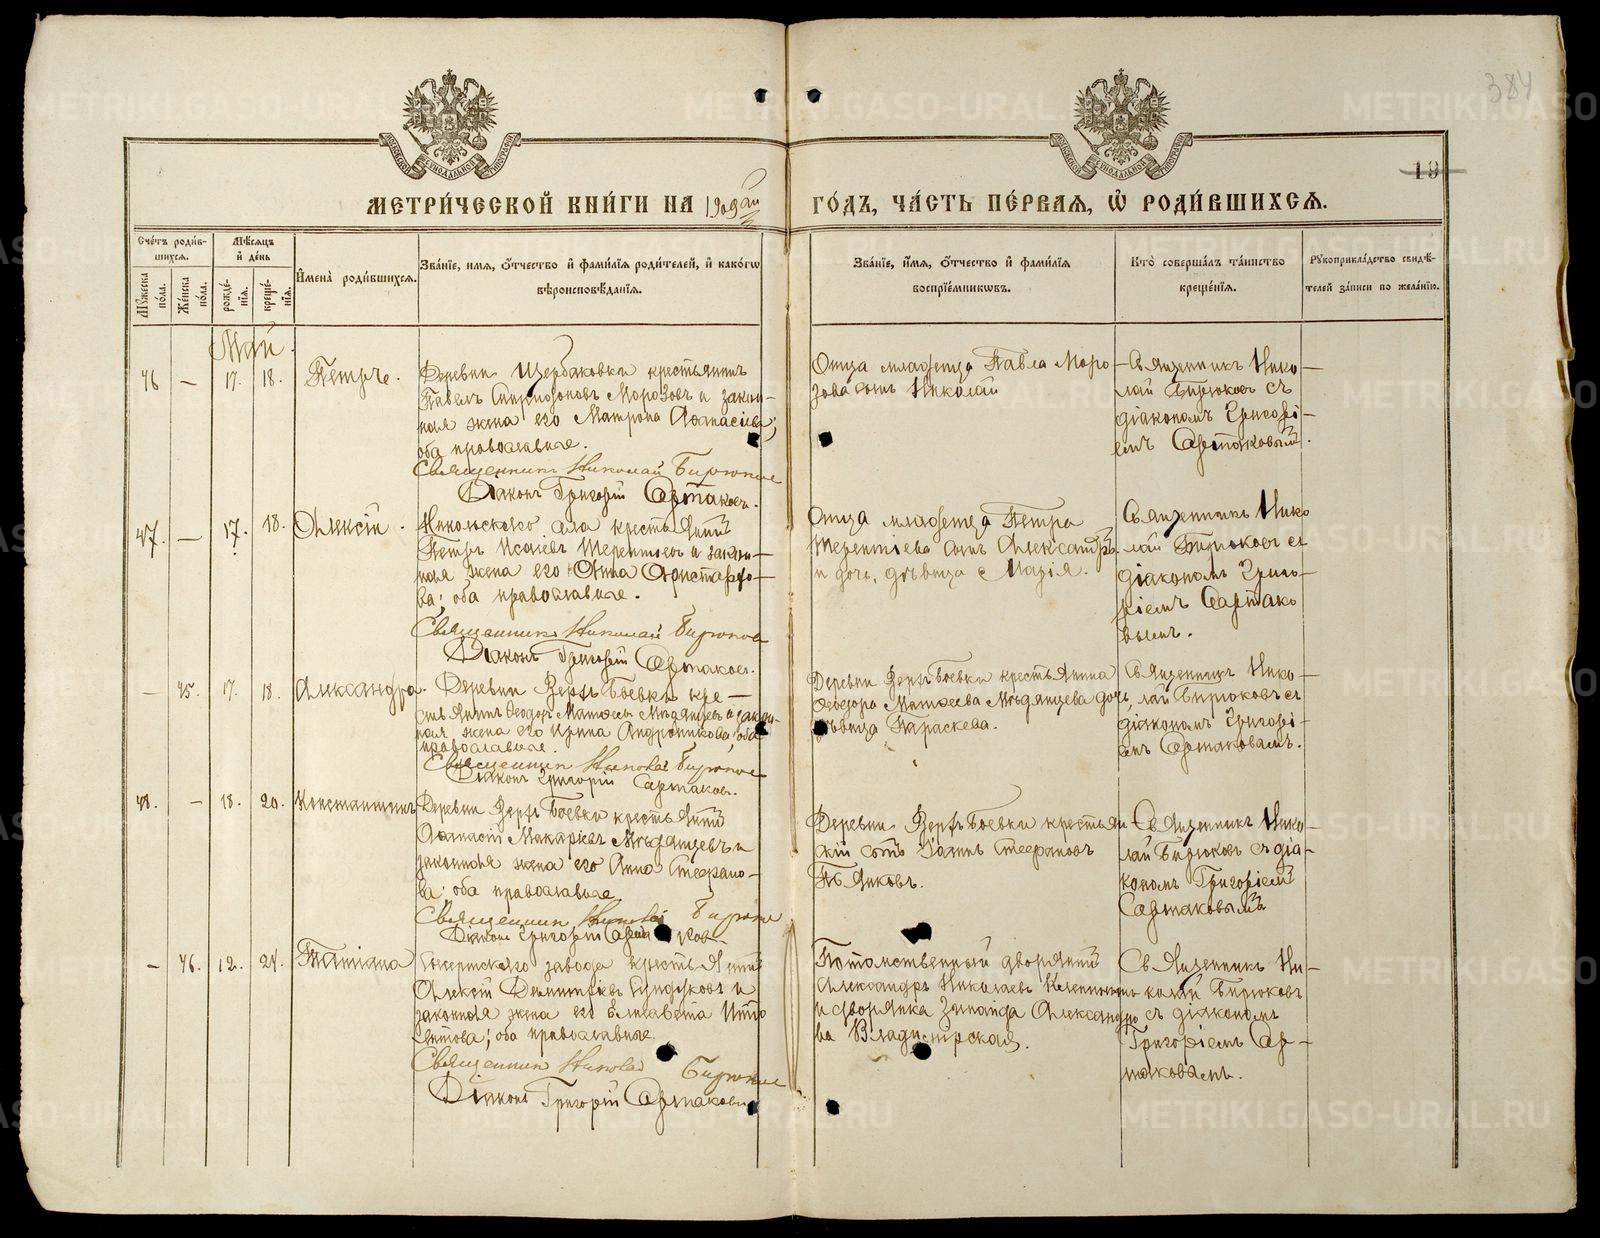 384
19
МЕТРИ́ЧЕСКОЙ КНИ́ГИ НА 1909ый
ГО́ДЪ, ЧА́СТЬ ПЕ́РВАЯ, Ѡ РОДИ́ВШИХСЯ.
Сче́тъ роди́в-
шихся.
Мѣ́сяцъ
и҆ де́нь
Мꙋ́жеска по́ла.
Же́нска по́ла.
рожде́-
нїѧ.
креще́-
нїѧ.
И҆мена̀ роди́вшихся.
Зва́нїе, и҆мя, ѻ҆́тчество и҆ фами́лїя роди́телей, и҆ како́гѡ
вѣроисповѣ́данїя.
Зва́нїе, и҆́мя, ѻ҆́тчество и҆ фами́лїя
воспрїе́мникѡвъ.
Кто̀ соверша́лъ та́инство
креще́нїя.
Рꙋкоприкла́дство свидѣ́-
телей за́писи по жела́нїю.
Май.
46 — 17. 18. Петръ.
Деревни Щербаковки крестьянинъ
Павелъ Спиридоновъ Морозовъ и закон-
ная жена его Матрона Аѳанасіева;
оба православные.
Священникъ Николай Бирюковъ
Діаконъ Григорій Сартаковъ.
Отца младенца Павла Моро-
зова сынъ Николай
Священникъ Нико-
лай Бирюковъ съ
діакономъ Григорі-
емъ Сартаковымъ.
47. — 17. 18. Алексій.
Никольскаго села крестьянинъ
Петръ Исаіевъ Терентьевъ и закон-
ная жена его Анна Аристархо-
ва; оба православные.
Священникъ Николай Бирюковъ
Діаконъ Григорій Сартаковъ.
Отца младенца Петра
Терентіева сынъ Александръ
и дочь, дѣвица Марія.
Священникъ Нико
лай Бирюковъ съ
діакономъ Григо-
ріемъ Сартако
вымъ.
— 45. 17. 18. Александра.
Деревни Верхъ Боевки кре-
стьянинъ Ѳеодоръ Матѳеевъ Мѣдянцевъ и закон-
ная жена его Ирина Андроникова; оба
православные.
Священникъ Николай Бирюковъ
Діаконъ Григорій Сартаковъ.
Деревни Верхъ Боевки крестьянина
Ѳеодора Матѳеева Мѣдянцева дочь,
дѣвица Параскева.
Священникъ Нико-
лай Бирюковъ съ
діакономъ Григорі-
емъ Сартаковымъ.
48. — 18. 20. Константинъ
Деревни Верхъ Боевки крестьянинъ
Аѳанасій Макаріевъ Мѣдянцевъ и
законная жена его Анна Стефано-
ва; оба православные
Священникъ Николай Бирюковъ
Діаконъ Григорій Сартаковъ.
Деревни Верхъ Боевки крестьян-
скій сынъ Іоаннъ Стефановъ
Пьянковъ.
Священникъ Нико-
лай Бирюковъ съ діа-
кономъ Григоріемъ
Сартаковымъ
— 46. 12. 24. Татіана
Сысертскаго завода крестьянинъ
Алексій Димитріевъ и
законная жена его Елисавета Иппо
литова; оба православные.
Священникъ Николай Бирюковъ
Діаконъ Григорій Сартаковъ
Потомственный дворянинъ
Александръ Николаевъ
и дворянка Зинаида Александро
ва Владимірская.
Священникъ Ни-
колай Бирюковъ
съ діакономъ
Григоріемъ Сар-
таковымъ.